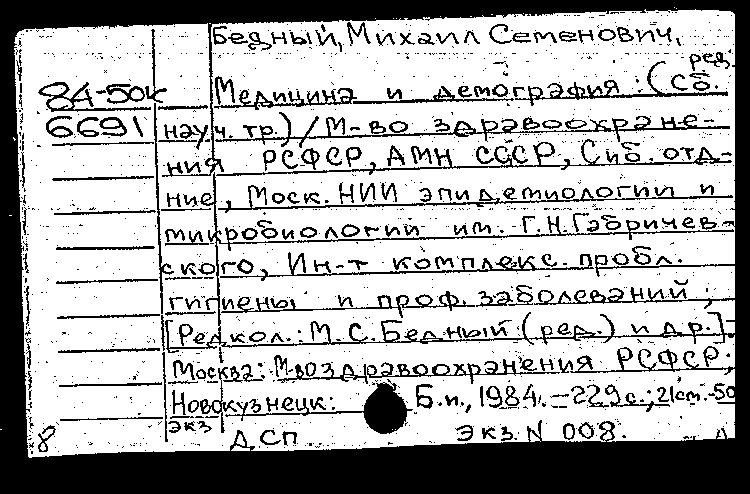 Бедный, Михаил Семенович,
ред.
84-50к Медицина и демография : (Сб.
6691 науч. тр.) / М-во здравоохране-
ния РСФСР, АМН СССР, Сиб. отд-
ние, Моск. НИИ эпидемиологии и
микробиологии им. Г.Н.Габричев-
ского, Ин-т комплекс. пробл.
гигиены и проф. заболеваний ;
[Редкол.: М.С.Бедный (ред.) и др.].-
Москва: М-во здравоохранения РСФСР;
Новокузнецк: Б.и., 1984. – 229 с.; 21 см. -50
экз
8 ДСП. экз. N 008.